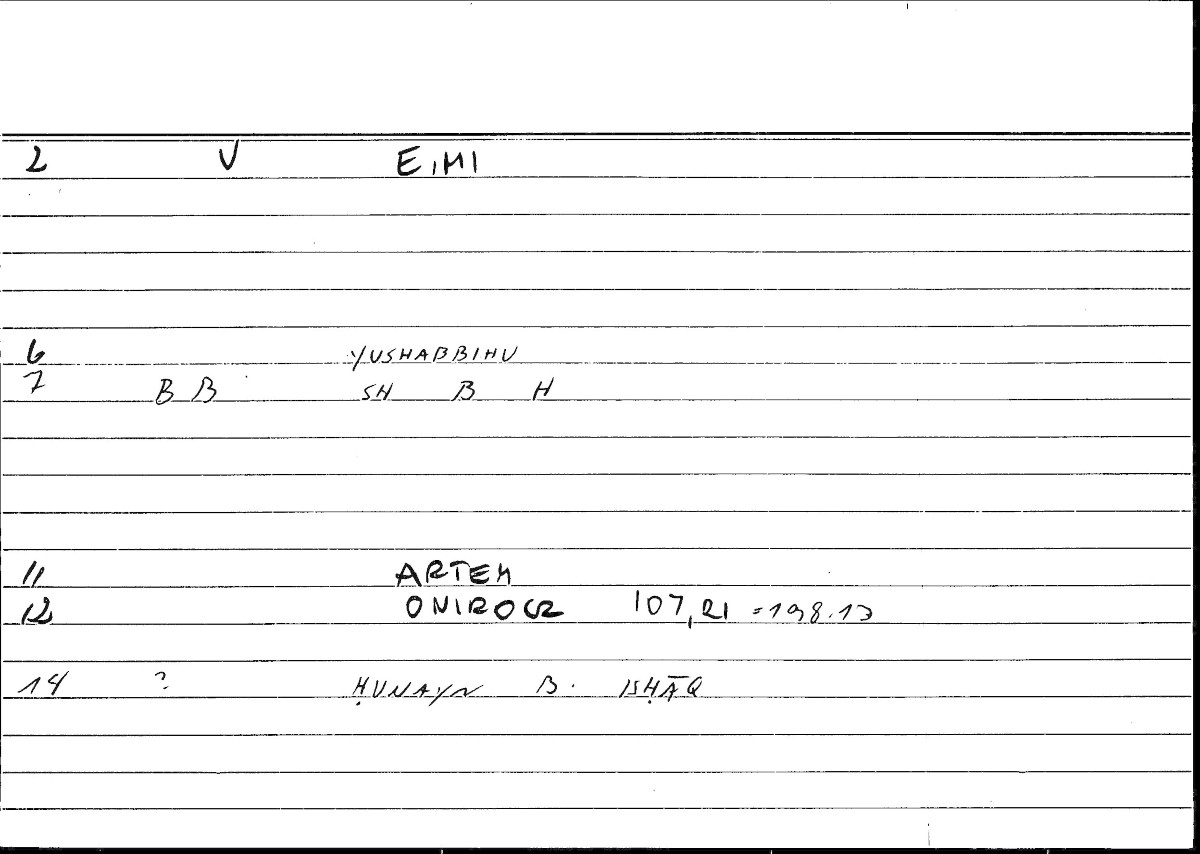 2 V E,MI
6 YUSHABBIHU
7 BB SH B H
11 ARTEM
12 ONIROCR 107,21 =198.13
14 ? ḤUNAYN B. ISḤĀQ